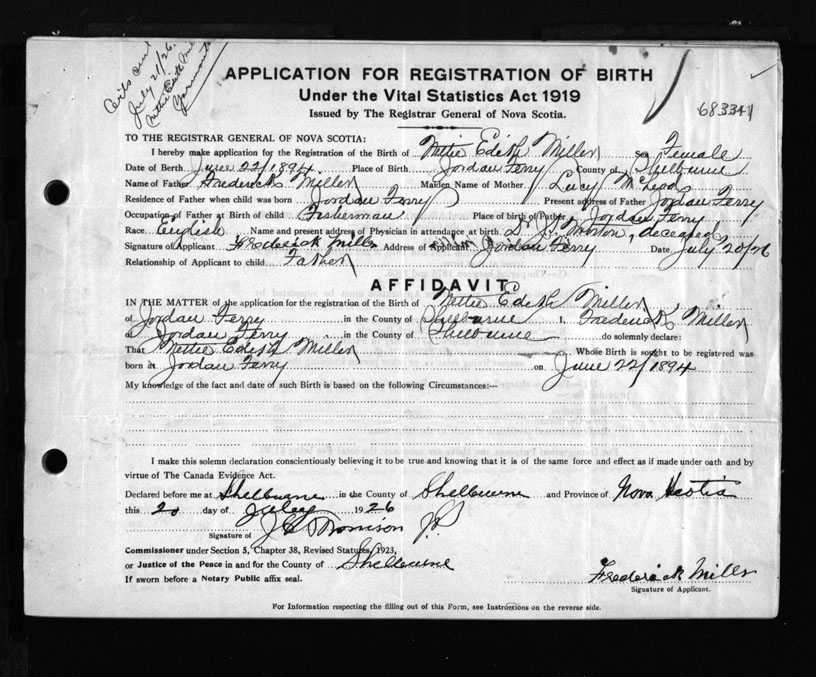 July 21/26
683341
APPLICATION FOR REGISTRATION OF BIRTH
Under the Vital Statistics Act 1919
Issued by The Registrar General of Nova Scotia.
TO THE REGISTRAR GENERAL OF NOVA SCOTIA:
I hereby make application for the Registration of the Birth of Nettie Edith Miller Sex Female
Date of Birth June 22/1894 Place of Birth Jordan Ferry County of Shelburne
Name of Father Frederick Miller Maiden Name of Mother Lucy McLeod
Residence of Father when child was born Jordan Ferry Present address of Father Jordan Ferry
Occupation of Father at Birth of child Fisherman Place of birth of Father Jordan Ferry
Race English Name and present address of Physician in attendance at birth Dr Morton, deceased
Signature of Applicant Frederick Mills Address of Applicant Jordan Ferry Date July 20/26
Relationship of Applicant to child Father
AFFIDAVIT
IN THE MATTER of the application for the registration of the Birth of Nettie Edith Miller
of Jordan Ferry in the County of Shelburne I, Frederick Miller
of Jordan Ferry in the County of Shelburne do solemnly declare:
That Nettie Edith Miller Whose Birth is sought to be registered was
born at Jordan Ferry on June 22/1894
My knowledge of the fact and date of such Birth is based on the following Circumstances:—
I make this solemn declaration conscientiously believing it to be true and knowing that it is of the same force and effect as if made under oath and by
virtue of The Canada Evidence Act.
Declared before me at Shelburne in the County of Shelburne and Province of Nova Scotia
this 20 day of July 1926
Signature of J Morrison JP
Commissioner under Section 5, Chapter 38, Revised Statutes, 1923,
or Justice of the Peace in and for the County of Shelburne
If sworn before a Notary Public affix seal.
Frederick Mills
Signature of Applicant.
For Information respecting the filling out of this Form, see Instructions on the reverse side.